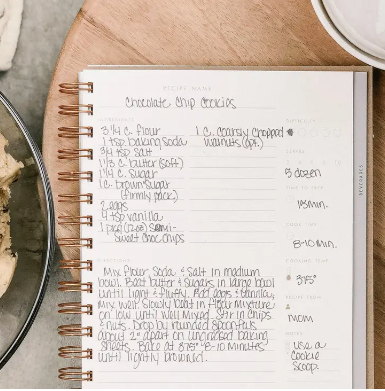 RECIPE NAME
Chocolate Chip Cookies
INGREDIENTS
3 1/4 c. flour
1 tsp baking soda
3/4 tsp salt
1 1/3 c. butter (soft)
1 1/4 c. sugar
1 c. brown sugar
(firmly pack)
2 eggs
4 tsp vanilla
1 (12oz) semi-
sweet choc chips
1 c. coarsly chopped
walnuts (opt.)
5 dozen
15min.
8-10 min.
375°
RECIPE FROM
mom
NOTES
use a
cookie
scoop.
DIRECTIONS
Mix Flour, Soda & Salt in medium
bowl. Beat butter & sugars in large bowl
until light & fluffy. Add eggs & vanilla,
mix well. Slowly beat in flour mixture
on low until well mixed. Stir in chips
& nuts. Drop by rounded spoonfuls
about 2" apart on ungreased baking
sheets. Bake at 375° 8-10 minutes
until lightly browned.